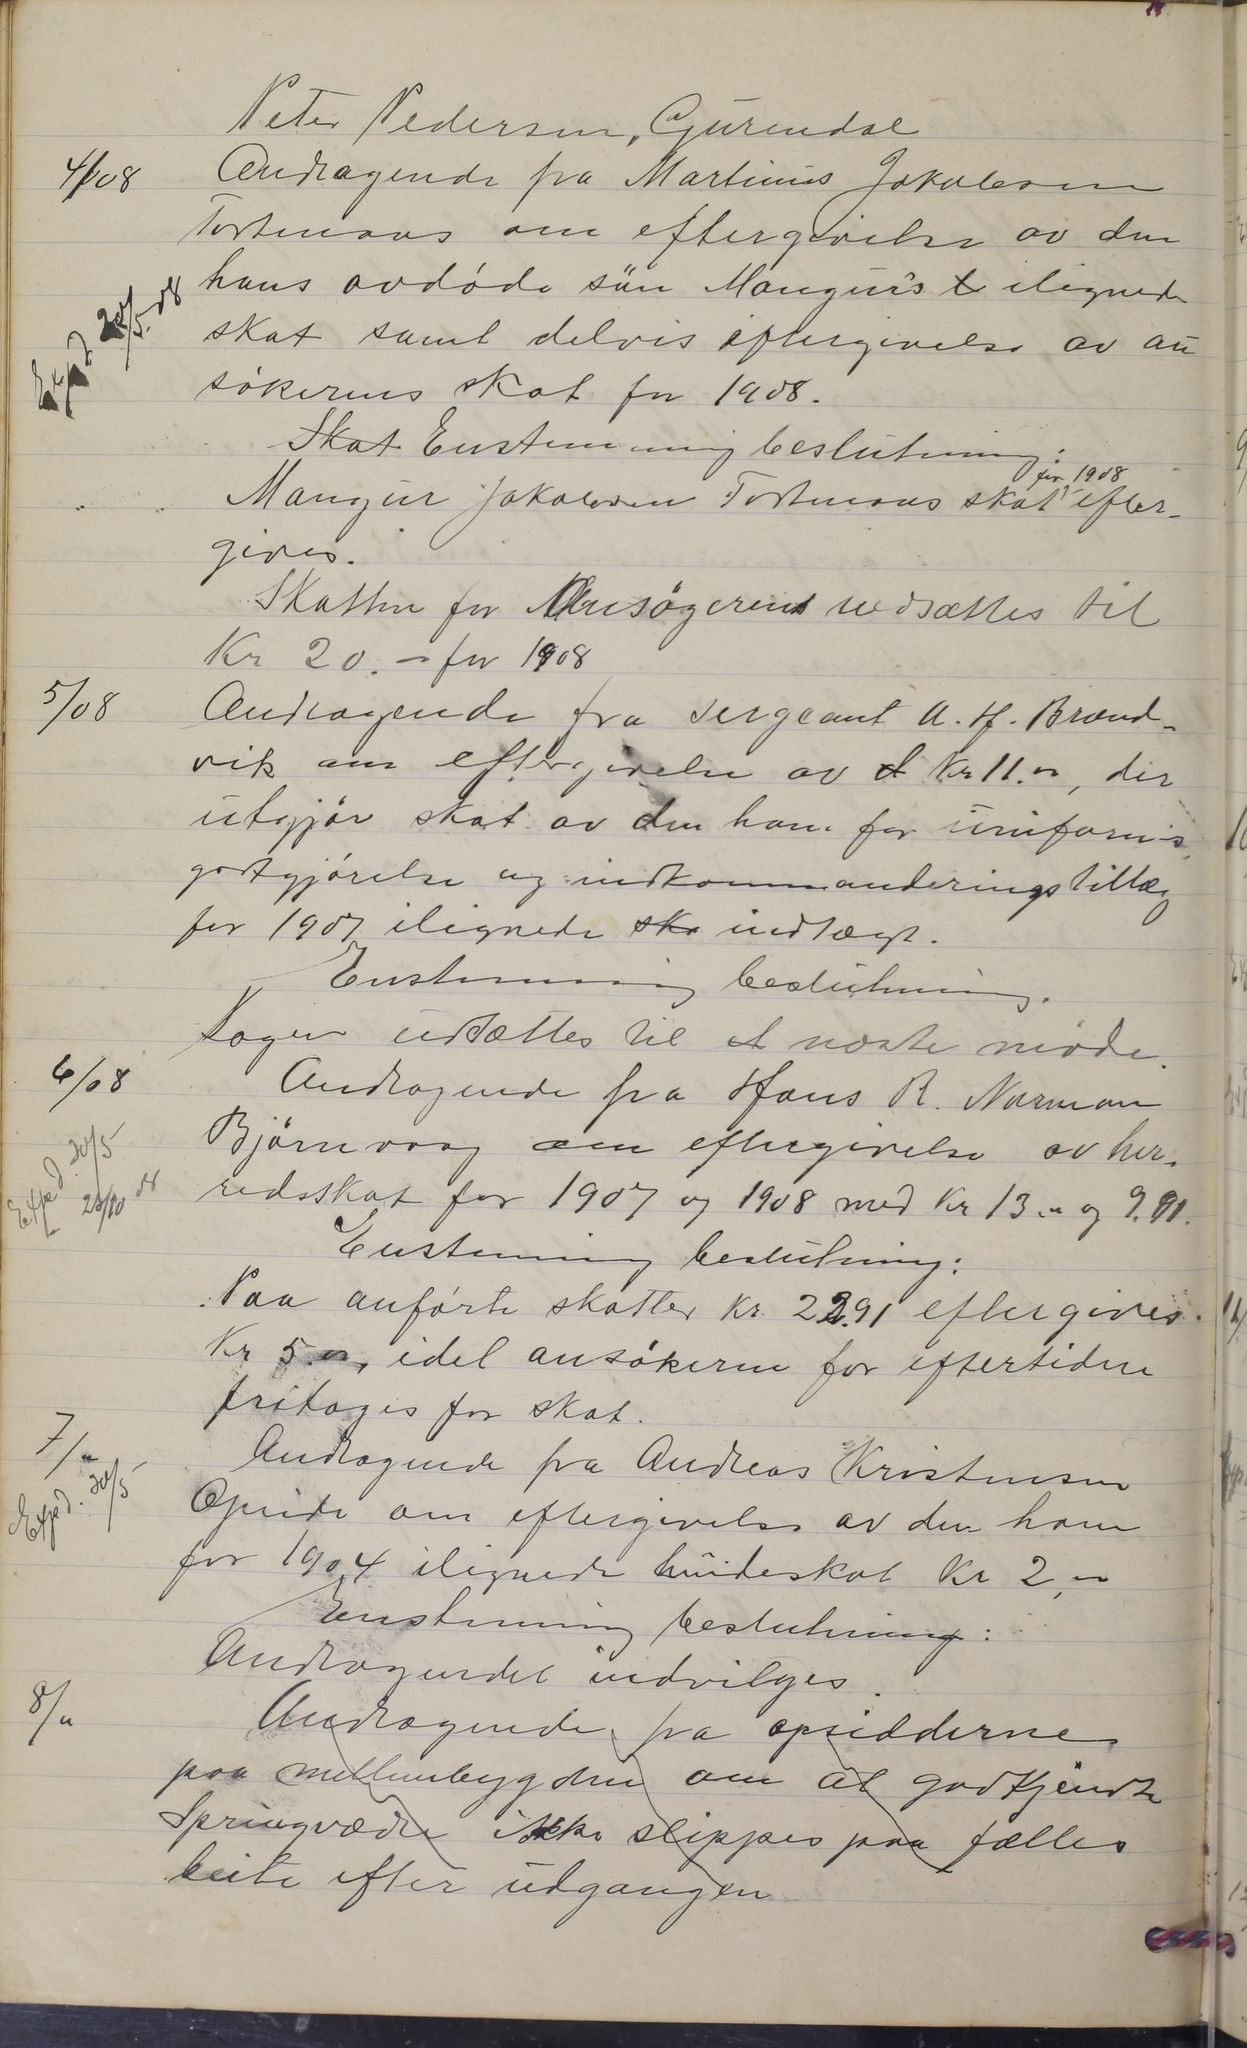 Peter Pedersen, Gjurendal
4/08 Andragende fra Martinus Jakobsen
Tortenaas om eftergivelse av den
hans avdøde søn Mangnus t ilignede
Exp d. 20/5. 08
skat samt delvis eftergivelse av an
søkerens skat for 1908.
Skat Enstemmig beslutning:
for 1908
Mangnur Jakobsen Tortenaas skat efter-
gives.
Skatten for Ansøgerens nedsættes til
Kr 20.- for 1908
5/08 Andragende fra sergeant A. H. Brænd-
vik om eftergivelse av d Kr 11.00, der
utgjør skat av den ham for uniforms
godtgjørelse og indkommanderingstillæg
for 1907 ilignede ska indtægt.
Enstemmig beslutning.
Sagen udsættes til et næste møde.
6/08 Andragende fra Hans R. Norman
Bjørnvaag om eftergivelse av her-
Exp d. 20/5
23/10 08
redsskat for 1907 og 1908 med Kr 13.00 og 9.91.
Enstemmig beslutning:
Paa anførte skatter Kr. 22.91 eftergives
Kr 5.00, idet ansøkeren for eftertiden
fritages for skat.
7/" Andragende fra Andreas Kristensen
Exp d. 20/5
om eftergivelse av den ham
for 1904 ilignede hundeskat Kr 2,00
Enstemmig beslutning:
Andragendet indvilges.
8/" Andragende fra opsidderne
paa mellembygden om at godkjendte
Springvædre ikke slippes paa fælles
beite efter udgangen